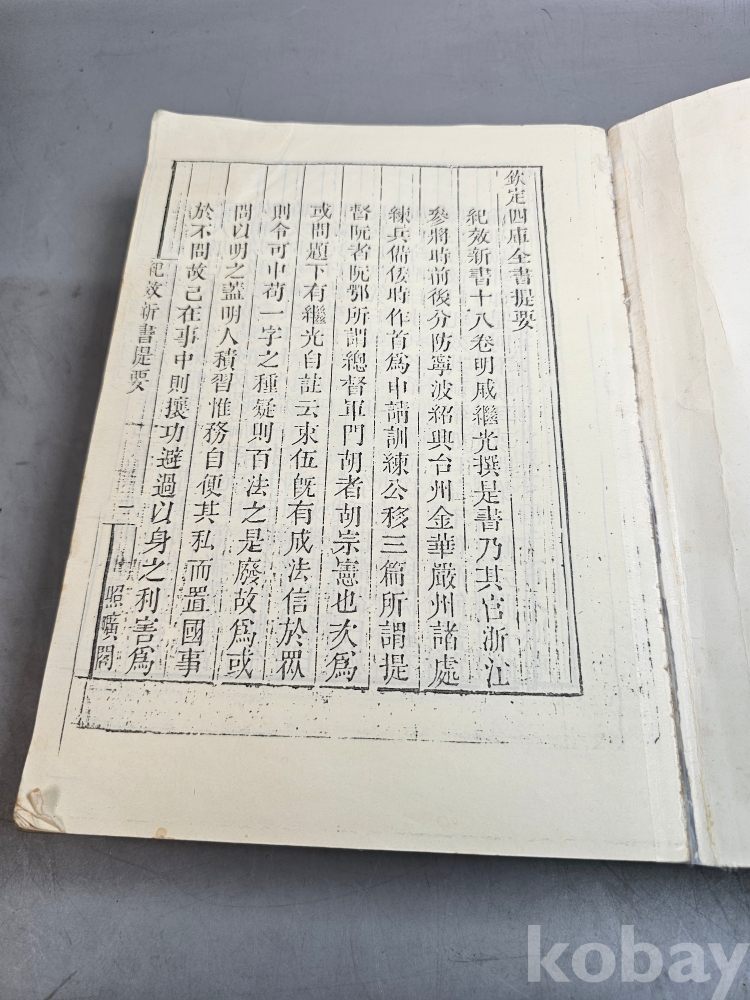 欽定四庫全書提要
紀效新書十八卷明戚繼光撰是書乃其官浙江
參將時前後分防寧波紹興台州金華嚴州諸處
練兵備倭時作首為申請訓練公移三篇所謂提
督阮者阮鄂所謂總督軍門胡者胡宗憲也次為
或問題下有繼光自註云束伍旣有成法信於眾
則令可申苟一字之種疑則百法之是廢故為或
問以明之蓋明人積習惟務自便其私而置國事
於不問故己在事中則攘功避過以身之利害為
紀效新書提要
照曠閣
kobay